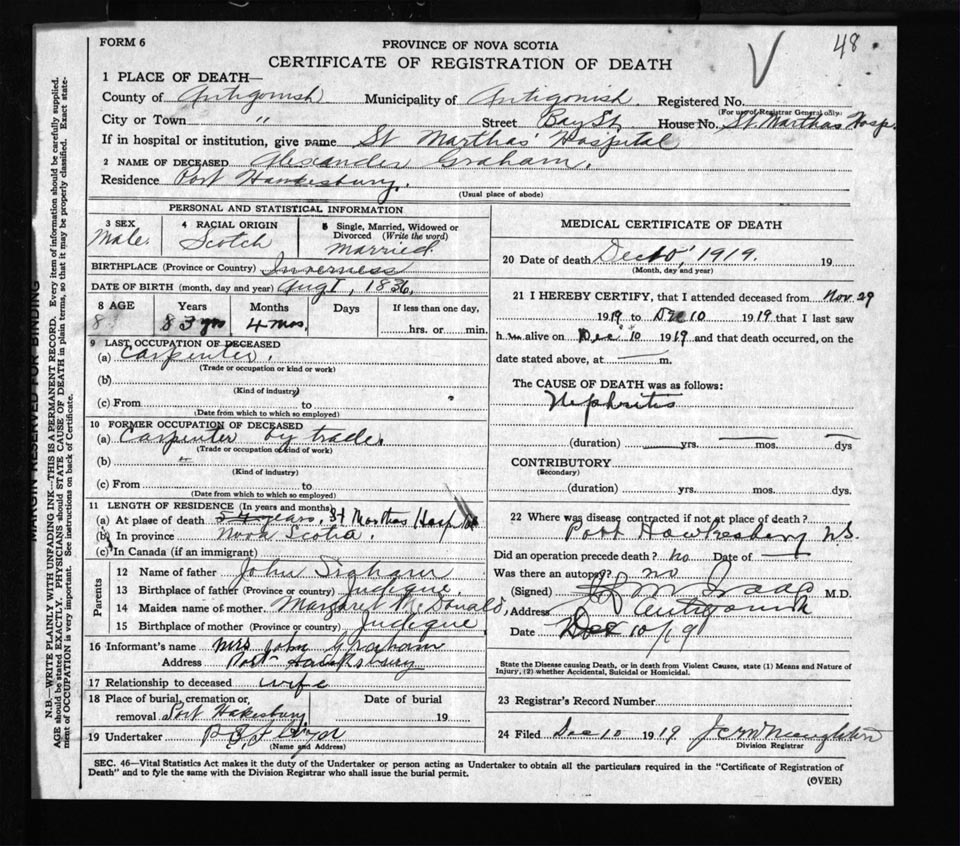 FORM 6
48
PROVINCE OF NOVA SCOTIA
CERTIFICATE OF REGISTRATION OF DEATH
1 PLACE OF DEATH—
County of Antigonish Municipality of Antigonish. Registered No.
(For use of Registrar General only)
City or Town " Street Bay St, House No. St Marthas Hosp.
If in hospital or institution, give name St Marthas Hospital
2 NAME OF DECEASED Alexander Graham.
Residence Port Hawkesbury.
(Usual place of abode)
PERSONAL AND STATISTICAL INFORMATION
3 SEX Male.
4 RACIAL ORIGIN Scotch
5 Single, Married, Widowed or Divorced (Write the word) Married.
BIRTHPLACE (Province or Country) Inverness
DATE OF BIRTH (month, day and year) Augt, 1836,
8 AGE Years Months Days If less than one day,
8 83 yrs 4 mos. hrs. or min.
9 LAST OCCUPATION OF DECEASED
(a) Carpenter.
(Trade or occupation or kind or work)
(b)
(Kind of industry)
(c) From to
(Date from which to which so employed)
10 FORMER OCCUPATION OF DECEASED
(a) Carpenter by trade.
(Trade or occupation or kind of work)
(b)
(Kind of industry)
(c) From to
(Date from which to which so employed)
11 LENGTH OF RESIDENCE (In years and months)
(a) At place of death 54 years. St Marthas Hosp
(b) In province Nova Scotia.
(c) In Canada (if an immigrant)
Parents
12 Name of father John
13 Birthplace of father (Province or country) Judique.
14 Maiden name of mother. Margaret McDonald,
15 Birthplace of mother (Province or country) Judique
16 Informant's name Mrs John Graham
Address Port Hawksbury
17 Relationship to deceased wife
18 Place of burial, cremation or, removal Port Hakesbury Date of burial 19
19 Undertaker
(Name and Address)
MEDICAL CERTIFICATE OF DEATH
20 Date of death Dec 10, 1919. 19
(Month, day and year)
21 I HEREBY CERTIFY, that I attended deceased from Nov. 29
1919 to Dec 10 1919 that I last saw
h im alive on Dec 10 1919 and that death occurred, on the
date stated above, at — m.
The CAUSE OF DEATH was as follows:
Nephritis
(duration) yrs. mos. dys
CONTRIBUTORY
(Secondary)
(duration) yrs. mos. dys.
22 Where was disease contracted if not at place of death?
Port Hawkesbury N.S.
Did an operation precede death? no Date of —
Was there an autopsy? no
(Signed) M.D.
Address Antigonish
Date Dec 10/19
State the Disease causing Death, or in death from Violent Causes, state (1) Means and Nature of
Injury, (2) whether Accidental, Suicidal or Homicidal.
23 Registrar's Record Number
24 Filed Dec 10 1919
Division Registrar
SEC. 46—Vital Statistics Act makes it the duty of the Undertaker or person acting as Undertaker to obtain all the particulars required in the "Certificate of Registration of
Death" and to fyle the same with the Division Registrar who shall issue the burial permit.
(OVER)
MARGIN RESERVED FOR BINDING
N.B.—WRITE PLAINLY WITH UNFADING INK—THIS IS A PERMANENT RECORD. Every item of information should be carefully supplied.
AGE should be stated EXACTLY. PHYSICIANS should STATE CAUSE OF DEATH in plain terms, so that it may be properly classified. Exact state-
ment of OCCUPATION is very important. See instructions on back of Certificate.